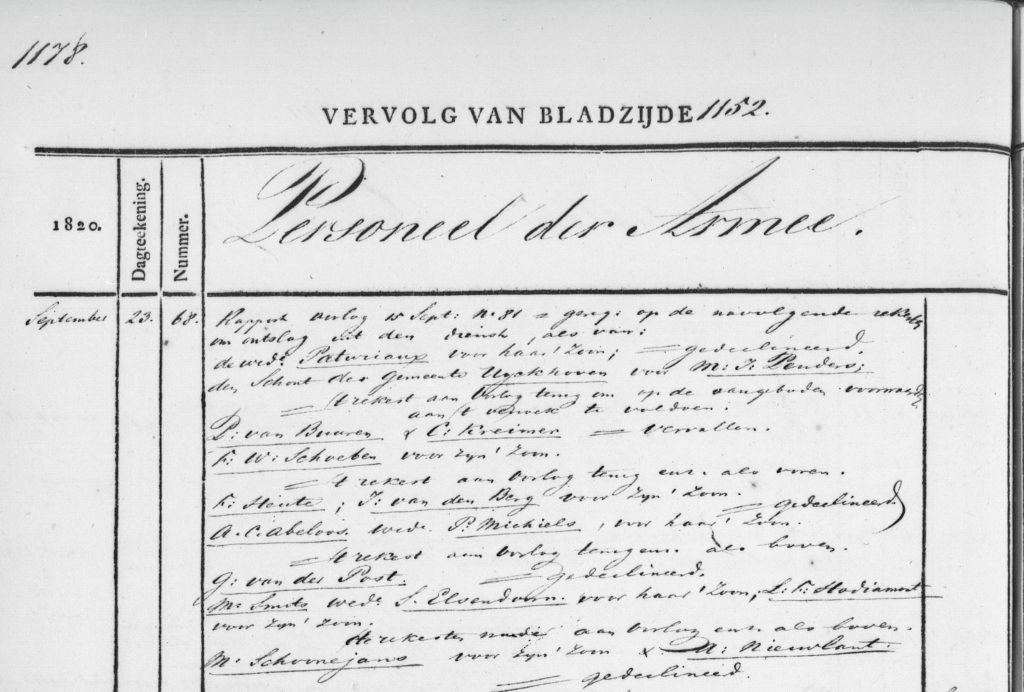 1178.
VERVOLG VAN BLADZIJDE 1152.
1820.
Dagteekening.
Nummer.
Personeel der Armee.
September 23. 68. Rapport Oorlog 15 Sept: No. 81 = geng: op de navolgende rekesten
om ontslag uit den dienst, als van:
de wede. Paturiaux voor haar' Zoon; = gedeclineerd.
den Schout der Gemeente Uyckhoven voor M: J: Penders;
= 't rekest aan Oorlog terug om op de aangeboden voorwaarden
aan 't verzoek te voldoen:
P: van Buuren & C: Kreimer = vervallen.
F: W: Schoeben voor zyn' Zoon.
= 't rekest aan Oorlog terug enz. als voren.
F: Heute; J: van den Berg voor Zyn' Zoon. = gedeclineerd
A. C. Abeloos wede. P: Michiels, voor haar' Zoon.
= 't rekest aan Oorlog terug enz. als boven.
G: van der Post. = gedeclineerd.
M: Smits wede. S. Elsendoorn. voor haar' Zoon; L: F: Hodiamont
voor zyn' Zoon.
rekesten aan Oorlog enz. als boven.
M: Schoonejans voor zyn' Zoon & N: Nieuwlant.
= gedeclineerd.